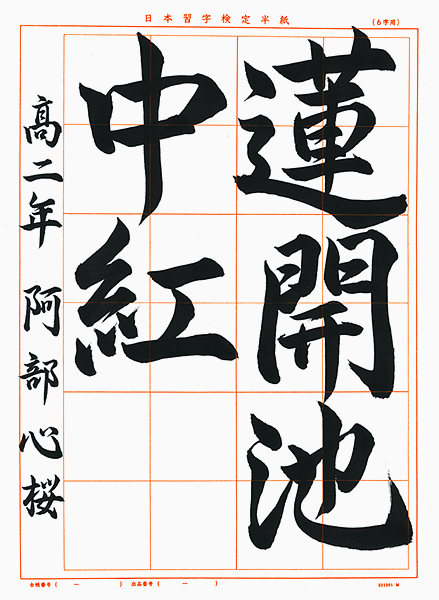 日本習字検定半紙
（6字用）
蓮開池
中紅
高二年 阿部心桜
合格番号（ー ） 出品番号（ー ）